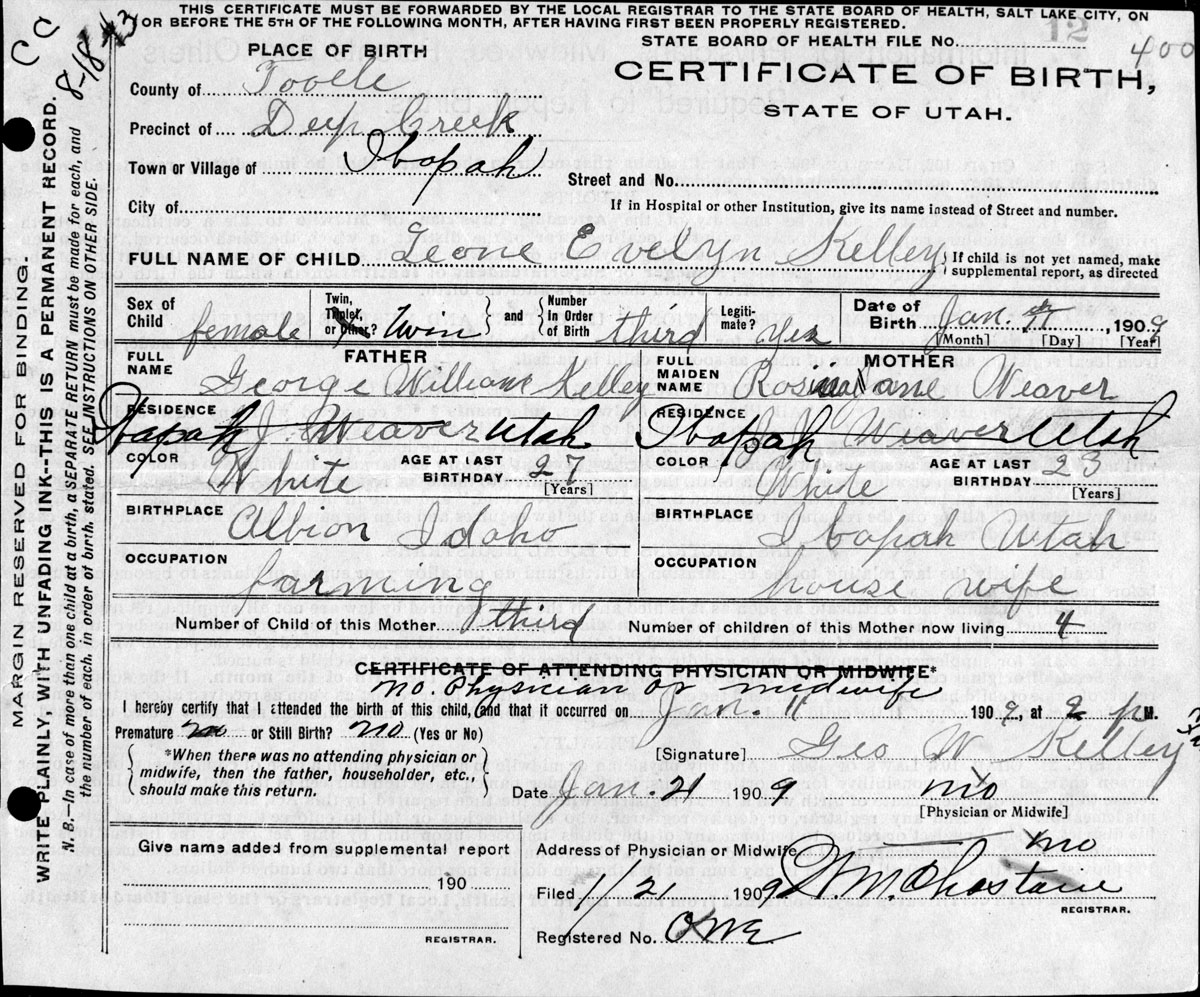 THIS CERTIFICATE MUST BE FORWARDED BY THE LOCAL REGISTRAR TO THE STATE BOARD OF HEALTH, SALT LAKE CITY, ON
OR BEFORE THE 5TH OF THE FOLLOWING MONTH, AFTER HAVING FIRST BEEN PROPERLY REGISTERED.
STATE BOARD OF HEALTH FILE No. 12
400
CC
8-18-43
MARGIN RESERVED FOR BINDING.
WRITE PLAINLY, WITH UNFADING INK--THIS IS A PERMANENT RECORD.
N. B.—In case of more than one child at a birth, a SEPARATE RETURN must be made for each, and
the number of each, in order of birth, stated. SEE INSTRUCTIONS ON OTHER SIDE.
PLACE OF BIRTH
CERTIFICATE OF BIRTH,
STATE OF UTAH.
County of Tooele
Precinct of Deep Creek
Town or Village of Ibapah
Street and No.
City of
If in Hospital or other Institution, give its name instead of Street and number.
FULL NAME OF CHILD Leone Evelyn Kelley
If child is not yet named, make
supplemental report, as directed
Sex of Child female
Twin, Triplet, or Other? Twin
and
Number In Order of Birth third
Legiti-mate? yes
Date of Birth Jan. 11, 1909
[Month] [Day] [Year]
FATHER
FULL NAME George William Kelley
MOTHER
FULL MAIDEN NAME Jane Weaver
RESIDENCE Ibapah J. Weaver Utah
RESIDENCE Ibapah Weaver Utah
COLOR White
AGE AT LAST BIRTHDAY 27 [Years]
COLOR White
AGE AT LAST BIRTHDAY 23 [Years]
BIRTHPLACE Albion Idaho
BIRTHPLACE Ibapah Utah
OCCUPATION farming
OCCUPATION house wife
Number of Child of this Mother third
Number of children of this Mother now living 4
CERTIFICATE OF ATTENDING PHYSICIAN OR MIDWIFE*
No. Physician or midwife
I hereby certify that I attended the birth of this child, (and that it occurred on Jan. 11 1909, at 2 p M.
Premature no or Still Birth? no (Yes or No)
[Signature] Geo W Kelley
*When there was no attending physician or
midwife, then the father, householder, etc.,
should make this return.
Date Jan. 21 1909 no
[Physician or Midwife]
Give name added from supplemental report
190
REGISTRAR.
Address of Physician or Midwife no
Filed 1/21 1909
REGISTRAR.
Registered No. one